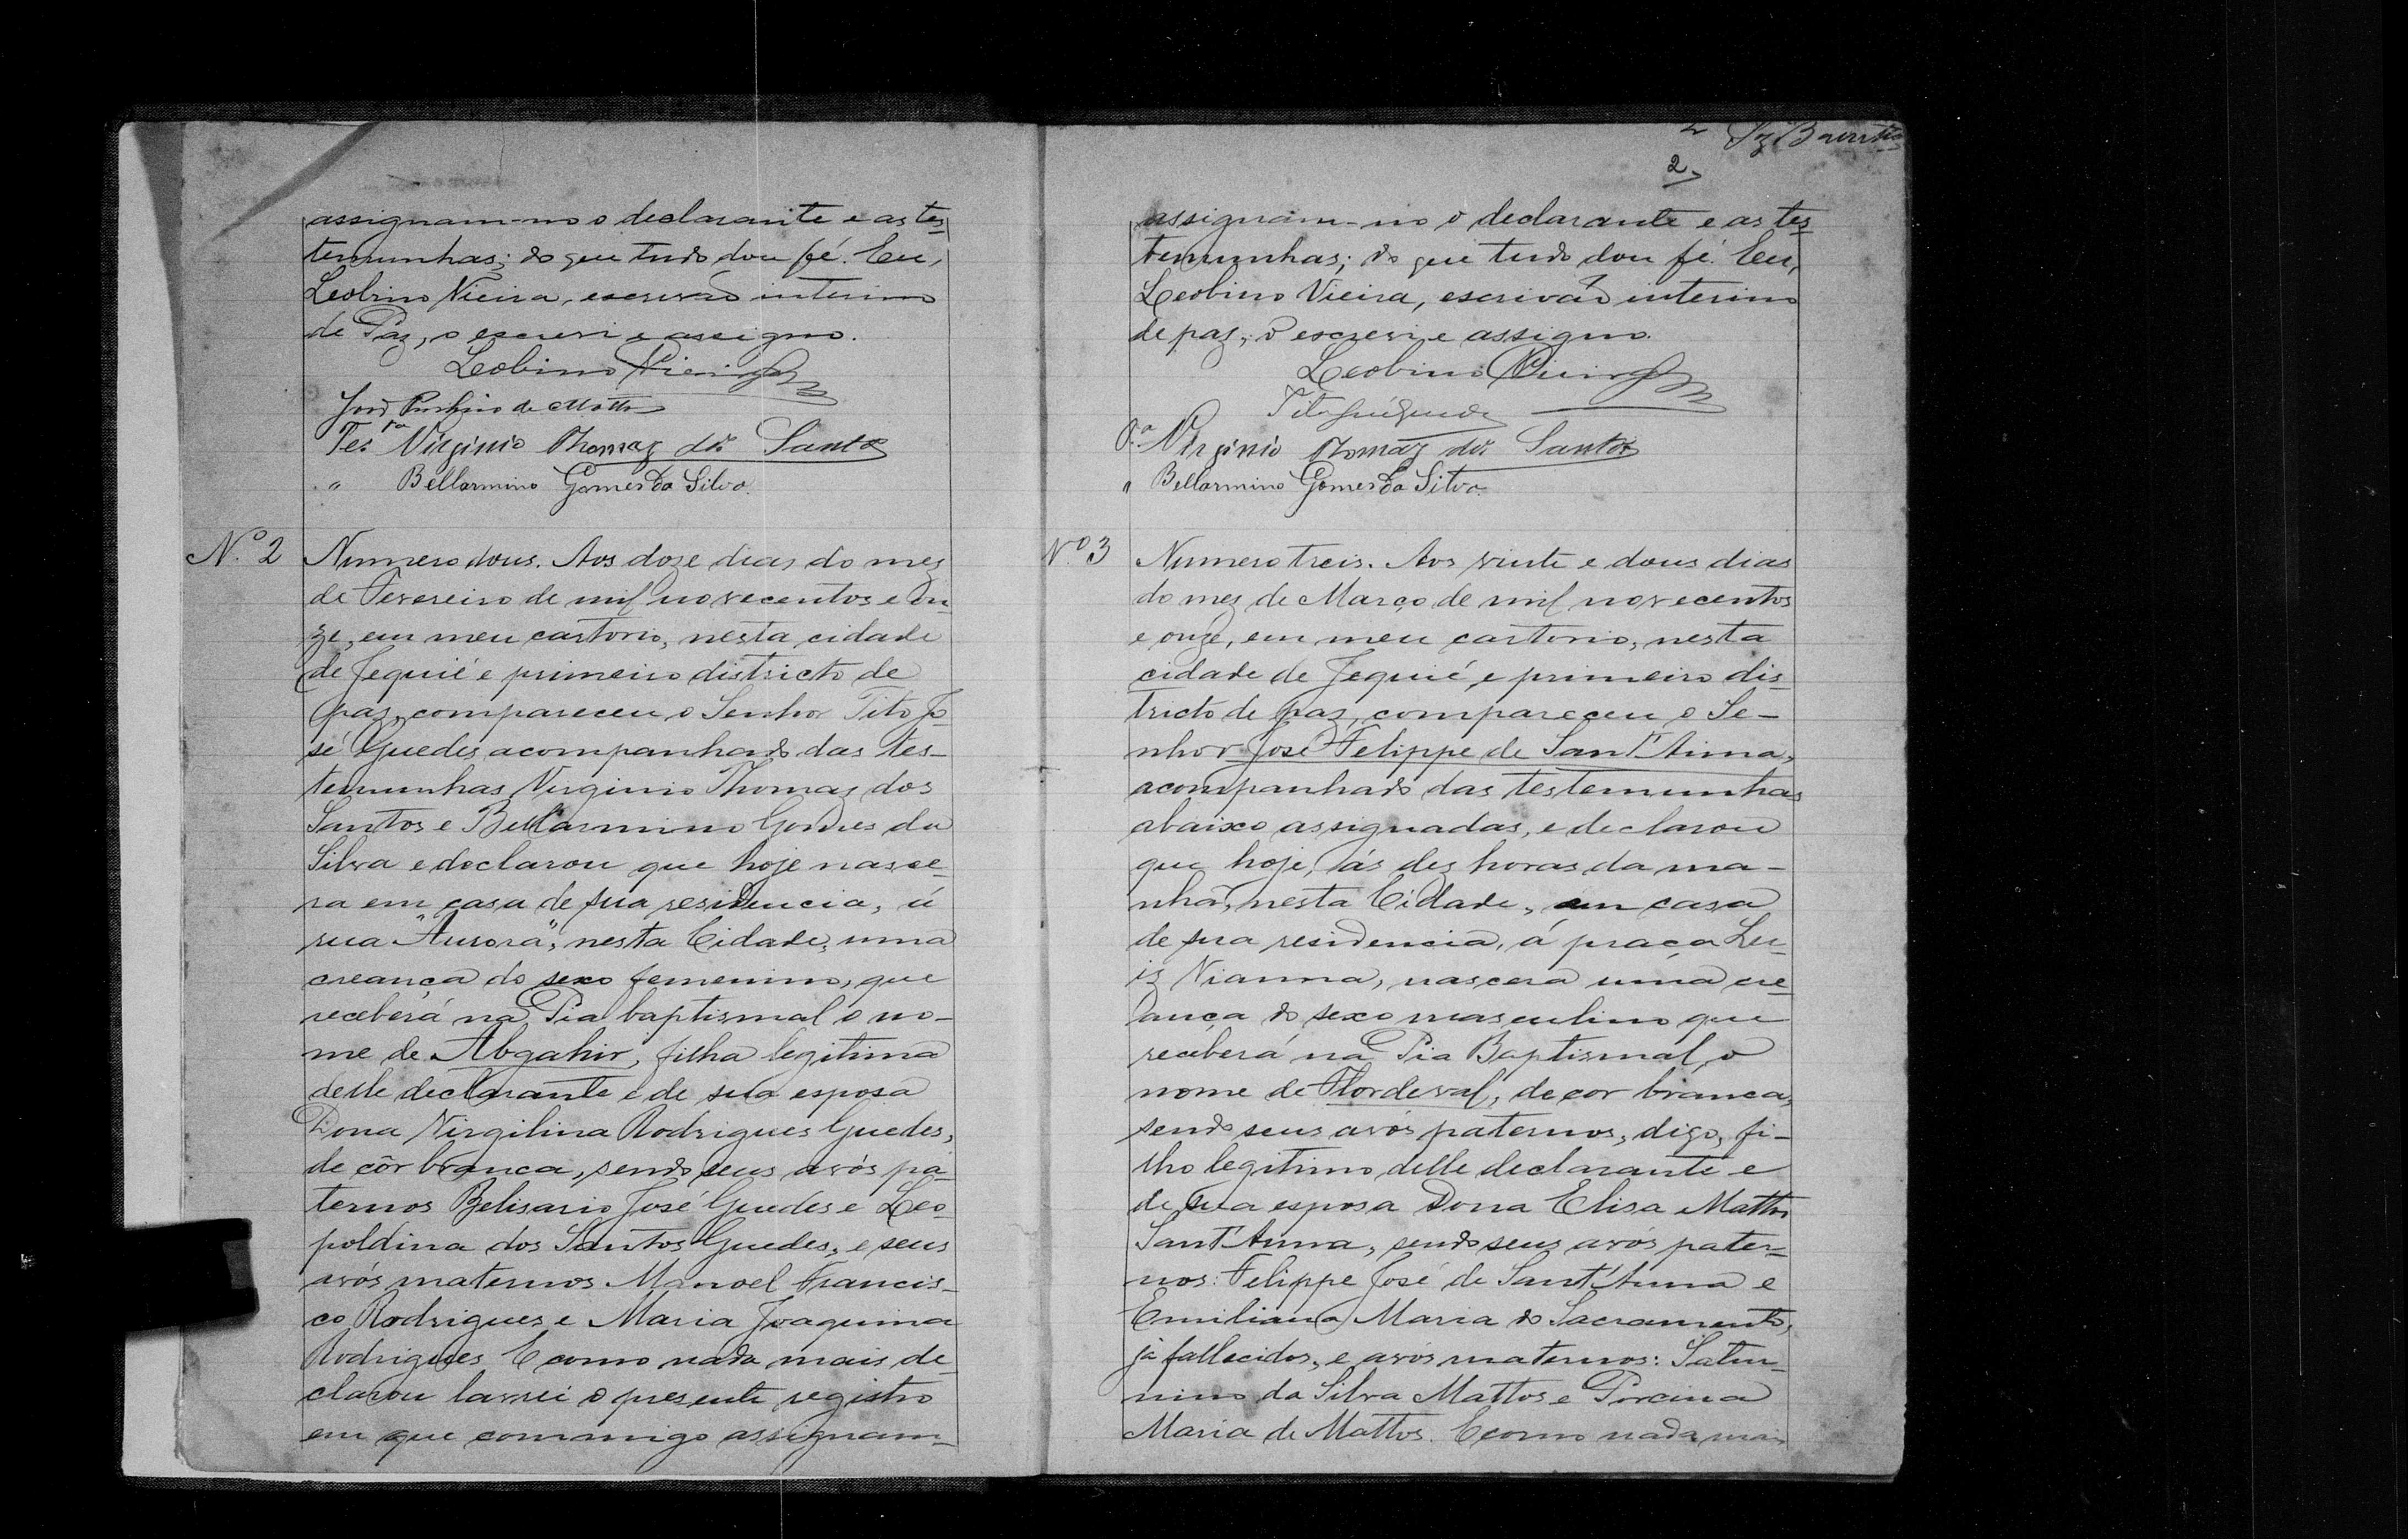 assignam-no o declarante e as tes-
temunhas; do que tudo dou fé. Eu,
Leobino Vieira, escrivão interino
de Paz, o escrevi e assigno.
Leobino Vieira
José de Mattos
Tes. Virginio Thomaz dos Santos
" Bellarmino Gomes da Silva.
Nº 2
Numero dous. Aos doze dias do mez
de Fevereiro de mil novecentos e on-
ze, em meu cartorio, nesta cidade
de Jequié e primeiro districto de
paz, compareceu o Senhor Tito Jo-
sé Guedes acompanhado das tes-
temunhas Virginio Thomaz dos
Santos e Bellarmino Gomes da
Silva e declarou que hoje nasce-
ra em casa de sua residencia, á
rua "Aurora", nesta Cidade, uma
creança do sexo femenino, que
receberá na Pia baptismal o no-
me de Abgahir, filha legitima
delle declarante e de sua esposa
Dona Virgilina Rodrigues Guedes,
de côr branca, sendo seus avós pa-
ternos Belisario José Guedes e Leo-
poldina dos Santos Guedes, e seus
avós maternos Manoel Francis-
co Rodrigues e Maria Joaquina
Rodrigues. E como nada mais de-
clarou lavrei o presente registro
em que commigo assignam-
2
assignam-no o declarante e as tes-
temunhas; do que tudo dou fé. Eu,
Leobino Vieira, escrivão interino
de paz, o escrevi e assigno.
Leobino Vieira
Tito José Guedes
Virginio Thomaz dos Santos
" Bellarmino Gomes da Silva.
Nº 3
Numero treis. Aos vinte e dous dias
do mez de Março de mil novecentos
e onze, em meu cartorio, nesta
cidade de Jequié, e primeiro dis-
tricto de paz, compareceu o Se-
nhor José Felippe de Sant'Anna,
acompanhado das testemunhas
abaixo assignadas, e declarou
que hoje, ás dez horas da ma-
nhã, nesta Cidade, em casa
de sua residencia, á praça Lu-
iz Vianna, nascera uma cre-
ança do sexo masculino que
receberá na Pia Baptismal, o
nome de Flordeval, de cor branca,
sendo seus avós paternos, digo, fi-
lho legitimo delle declarante e
de sua esposa Dona Elisa Mattos
Sant'Anna, sendo seus avós pater-
nos: Felippe José de Sant'Anna e
Emiliana Maria do Sacramento,
já fallecidos, e avós maternos: Satur-
nino da Silva Mattos e Porcina
Maria de Mattos. E como nada mais